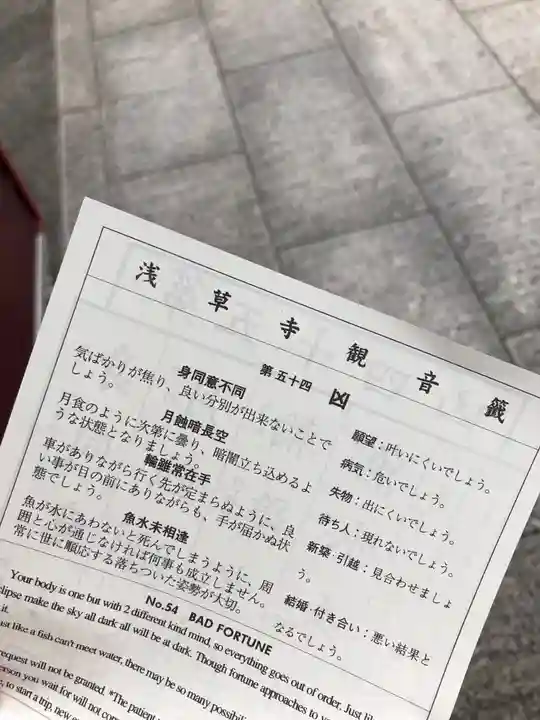 浅草寺観音籤
第五十四 凶
身同意不同
気ばかりが焦り、良い分別が出来ないことで
しょう。
月蝕暗長空
月食のように次第に曇り、暗闇立ち込めるよ
うな状態となりましょう。
輪雖常在手
車がありながら行く先が定まらぬように、良
い事が目の前にありながらも、手が届かぬ状
態でしょう。
魚水未相逢
魚が水にあわないと死んでしまうように、周
囲と心が通じなければ何事も成立しません。
常に世に順応する落ちついた姿勢が大切。
願望:叶いにくいでしょう。
病気:危いでしょう。
失物:出にくいでしょう。
待ち人:現れないでしょう。
新築・引越:見合わせましょ
う。
結婚・付き合い:悪い結果と
なるでしょう。
No.54 BAD FORTUNE
Your body is one but with 2 different kind mind, so everything goes out of order. Just like
clipse make the sky all dark all will be at dark. Though fortune approaches to
it.
ust like a fish can't meet water, there may be so many
request will not be granted. *The patient
erson you wait for will not
, to start a trip, new